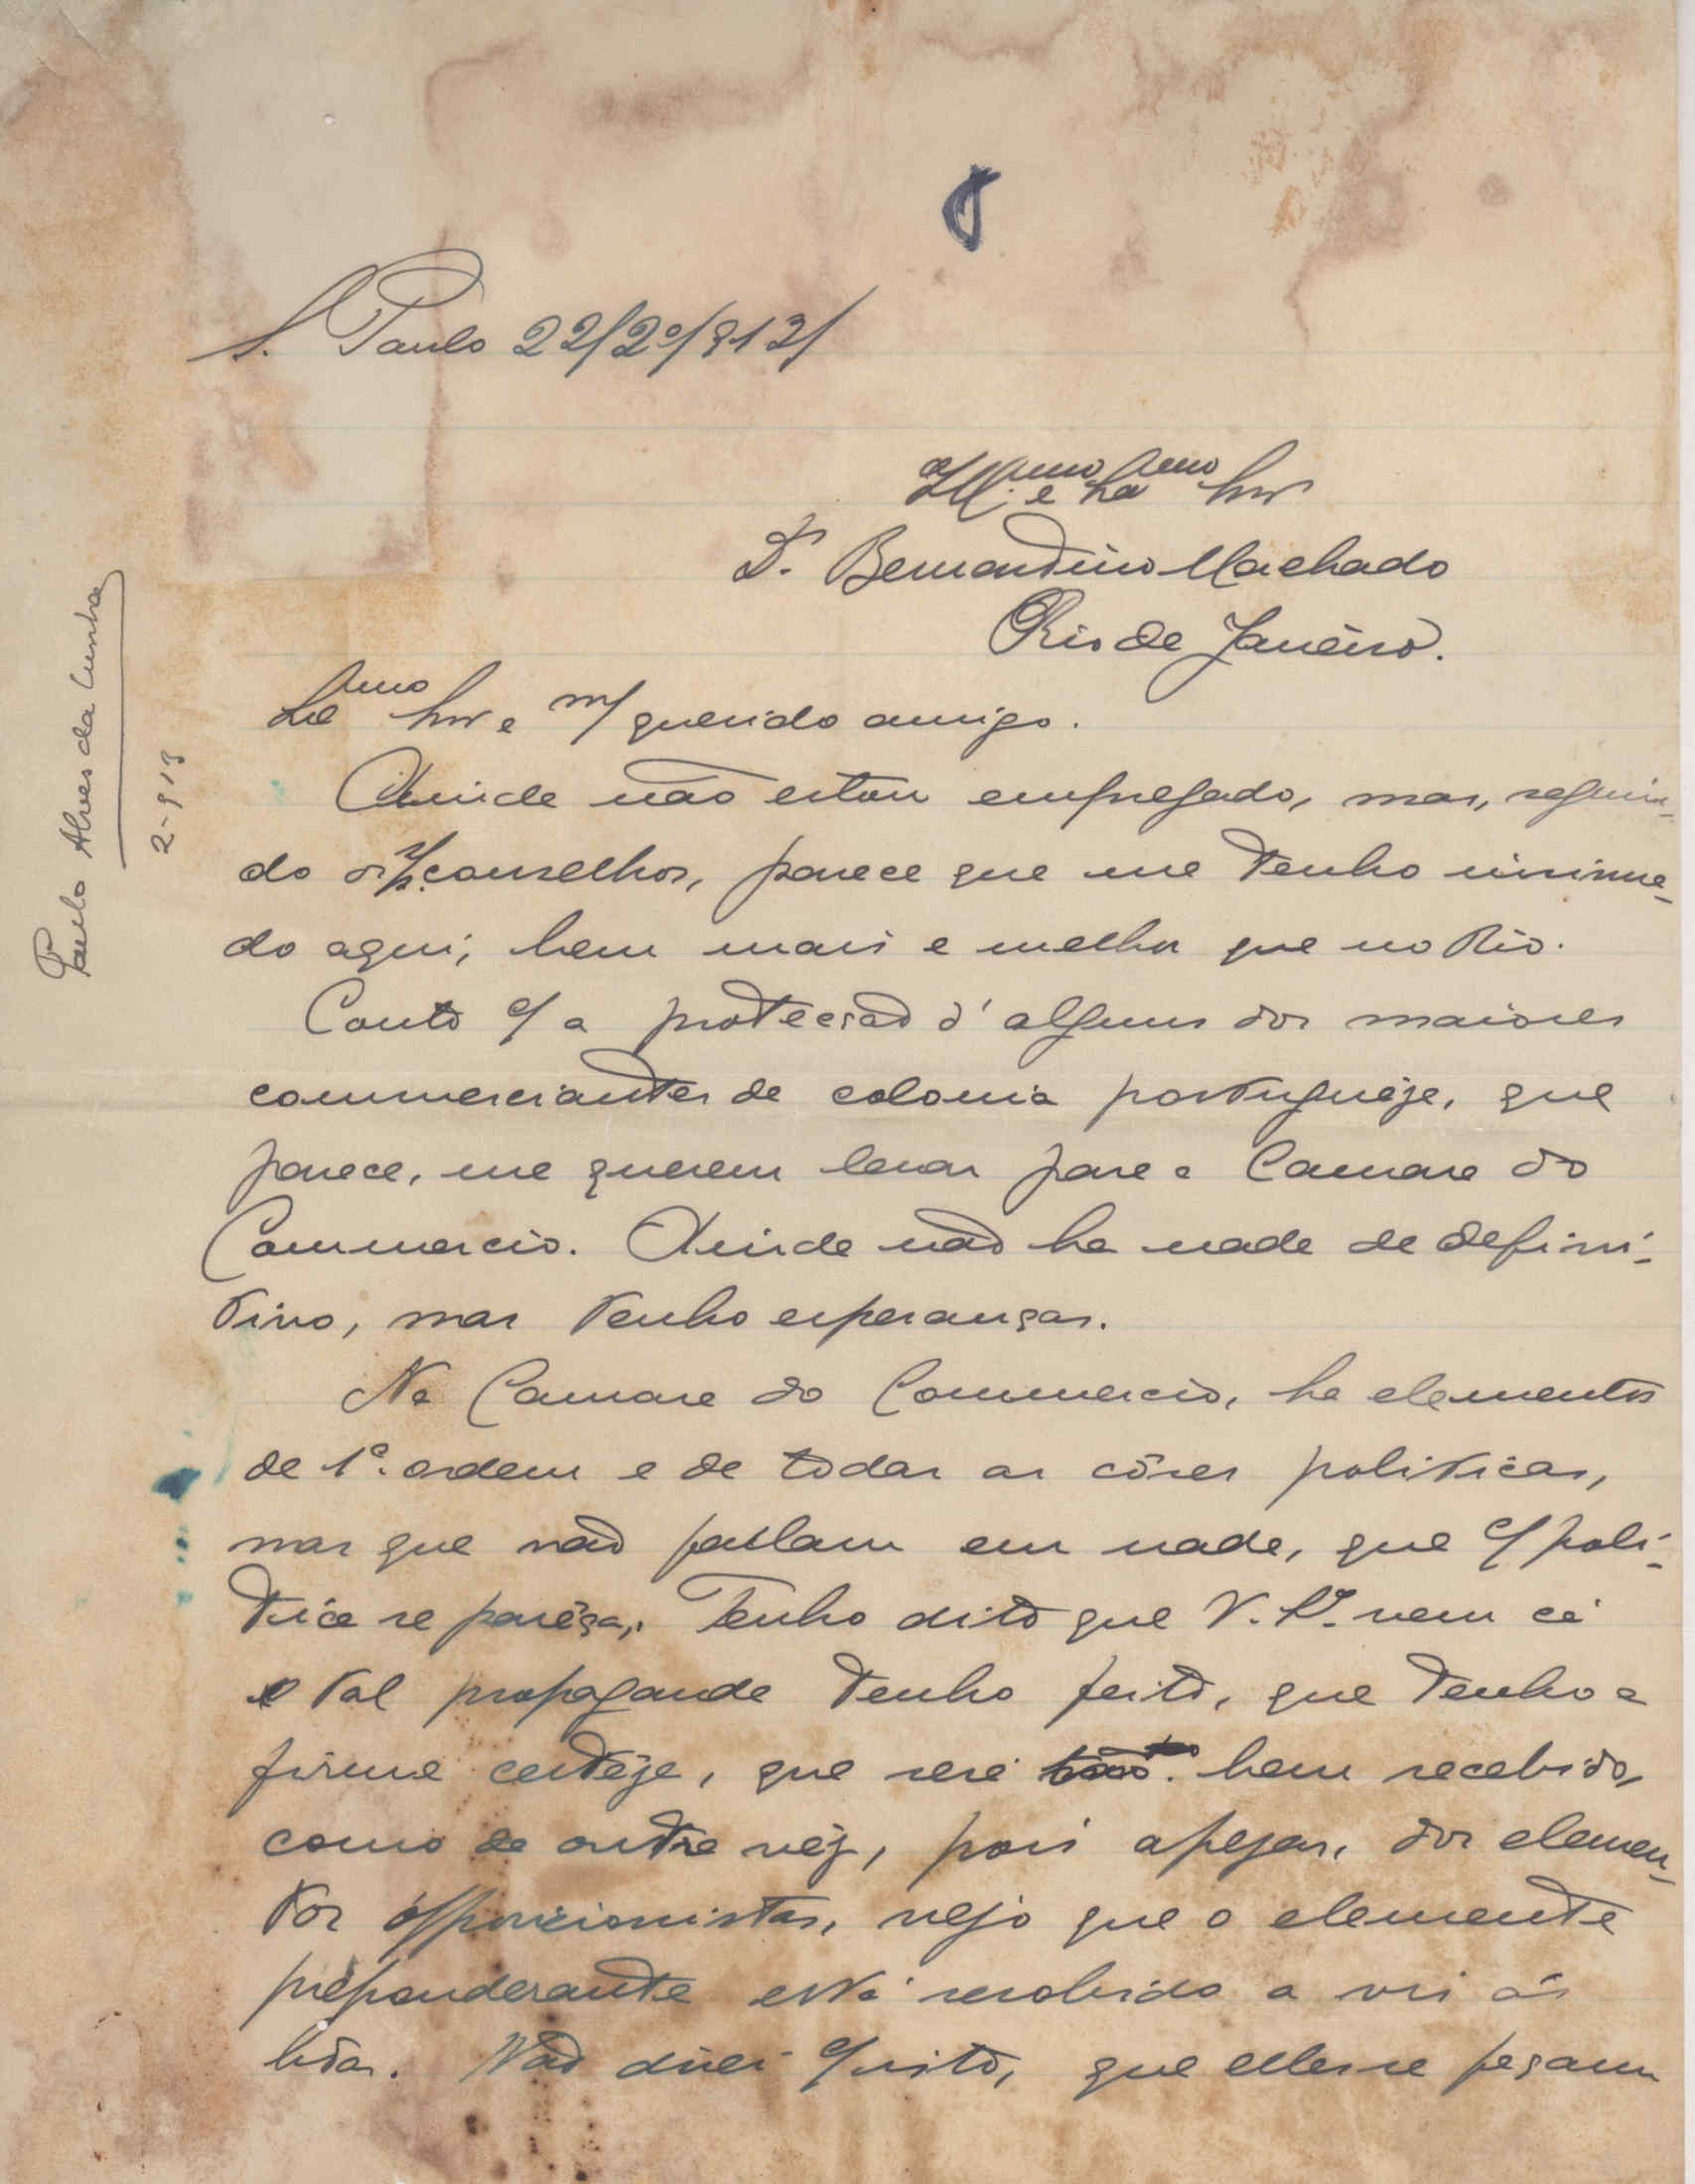 S. Paulo 22/2º/913/
Ill.mo e Ex.mo Snr
Dr. Bernardino Machado
Rio de Janeiro.
Ex.mo Snr e m/ querido amigo.
Ainda não estou empregado, mas, seguin-
do os conselhos, parece que me tenho insinua-
do aqui, bem mais e melhor que no Rio.
Conto c/ a protecção d'alguns dos maiores
commerciantes da colonia portuguêza, que
parece, me querem levar para a Camara do
Commercio. Ainda não ha nada de defini-
tivo, mas tenho esperanças.
Na Camara do Commercio, ha elementos
de 1ª ordem e de todas as côres politicas,
mas que não fallam em nada, que c/ poli-
tica se pareça,. Tenho dito que V. Exª. vem cá
e tal propaganda tenho feito, que tenho a
firme certêza, que será bem recebido,
como da outra vêz, pois apezar, dos elemen-
tos opposicionistas, vejo que o elemento
preponderante está resolvido a vir ás
bôas. Não direi c/ isto, que elles se façam
Paulo Alves da Cunha
2-913